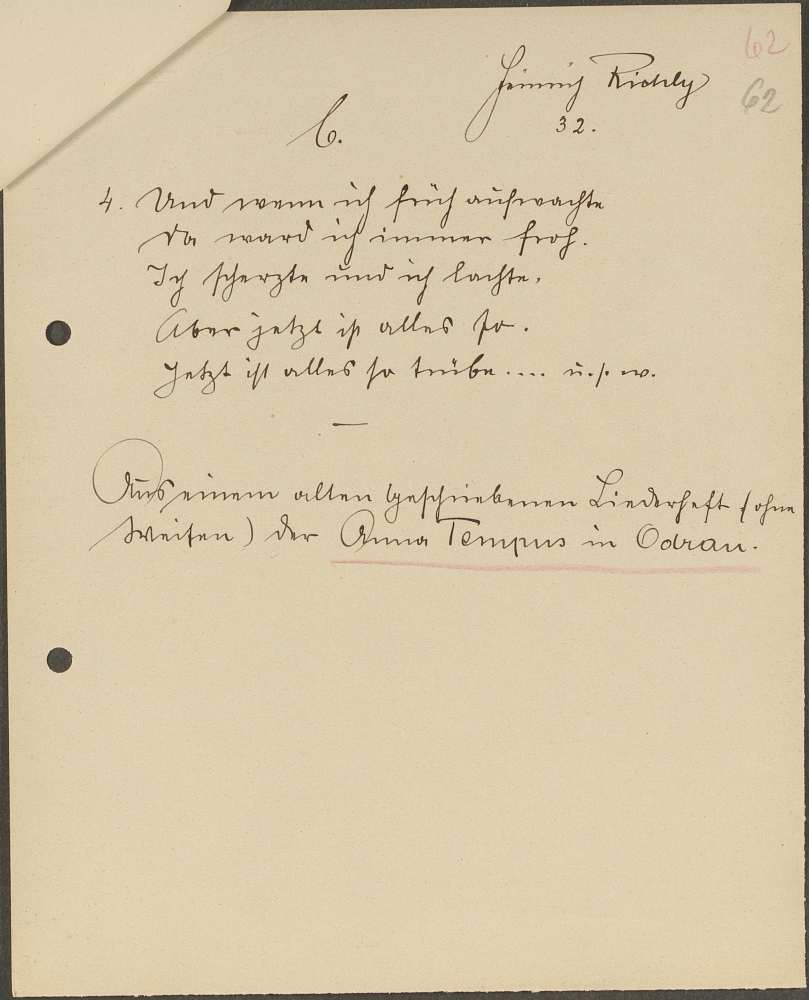 62
Heinrich Richly 62
6. 32.
4. Und wenn ich früh aufwachte
Da ward ich immer froh.
Ich scherzte und ich lachte,
Aber jetzt ist alles so.
Jetzt ist alles so trübe .... u. s. w.
Aus einem alten geschriebenen Liederheft (ohne
Weisen) der Anna Tempus in Odrau.